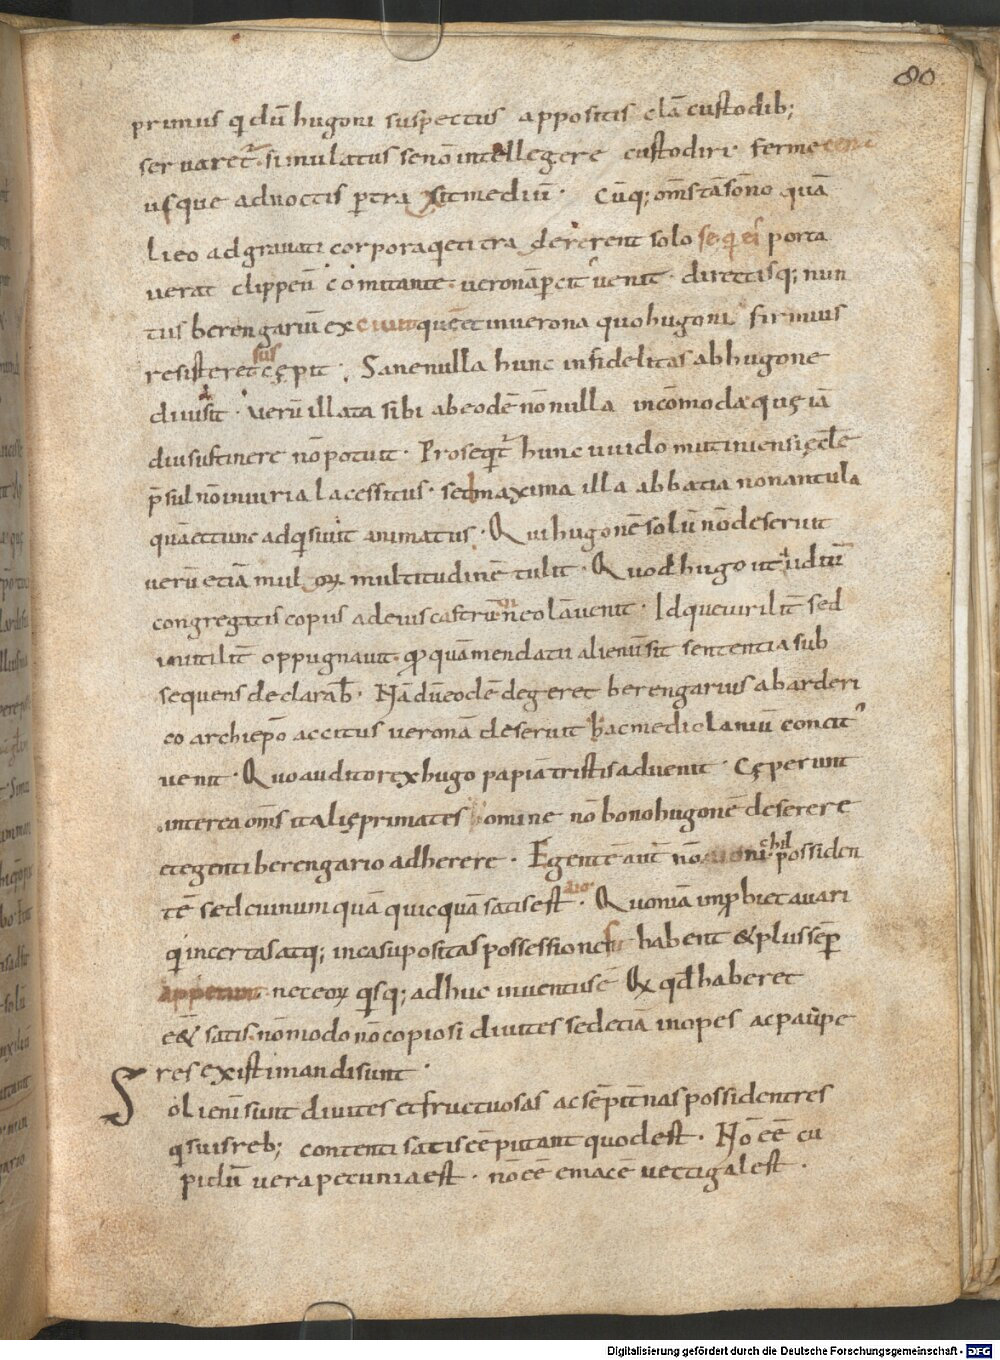 80
primus q dū hugoni suspectus appositis clā custodib;
servaret simulatus se nō intellegere custodiri ferme cena
usque ad noctis ptransit mediū · Cūq; om̄s tā somno quā
lieo adgravati corpora qeti traderent solo seq ei porta
verat clippeū comitante veronā pcit venit · directisq; nun
tus berengariū ex quēet in verona quo hugoni firmius
resisteret suscępit · Sane nulla hunc infidelitas ab hugone
divisit · verū illata sibi ab eodē non nulla incōmoda quę iā
diu sustinere nō potuit · Prosequit hunc uuido mutinensi ęcl̄e
p̄sul nō iniuria lacessitus · sed maxima illa abbatia nonantula
quā et tunc adqisivit animatus · Qui hugonē solū nō deseruit
verū etiā mul multitudinē tulit · Quod hugo ut audiuit
congregatis copiis ad eius castrū vineolā venit · Idque viriliт sed
inutiliт oppugnavit · quā mendatii alienū sit sententia sub
sequens declarab · Nā dū eodē degeret berengarius ab arderi
co archiepō accitus veronā deseruit hac mediolaniū concit
venit · Quo audito rex hugo papiā tristis advenit · Cęperunt
interea om̄s italię primates omine nō bono hugonē deserere
et egenti berengario adherere · Egentē aut nō nichil possiden
tē sed cui numquā quicquā satis est · Quoniā imp̄bi et avari
q incertas atq; in casu positas possessiones habent & plus sēp
appetunt nec eoꝝ qisq; adhuc inventus ē cui qd haberet
eēt satis nō modo nō copiosi divites sed etiā inopes ac paūpe
res existimandi sunt ·
Soli enī sunt divites et fructuosas ac sēpitnas possidentes
q suis reb; contenti satis eē putant quod est · Nō eē cu
pidū vera pecunia est · nō eē emacē vectigal est ·
Digitalisierung gefördert durch die Deutsche Forschungsgemeinschaft · DFG